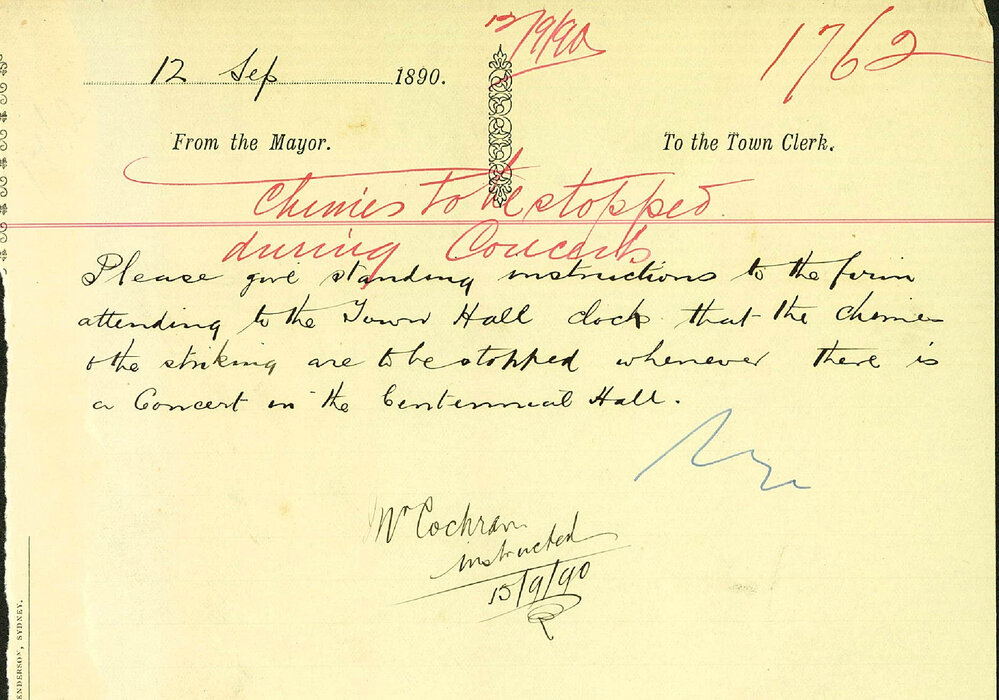 12/9/90
1762
12 Sep 1890.
From the Mayor.
To the Town Clerk.
Chimes to be stopped
during Concerts
Please give standing instructions to the firm
attending to the Town Hall clock that the chimes
& the striking are to be stopped whenever there is
a Concert in the Centennial Hall.
Mr Cochran
instructed
15/9/90
ENDERSON, SYDNEY.